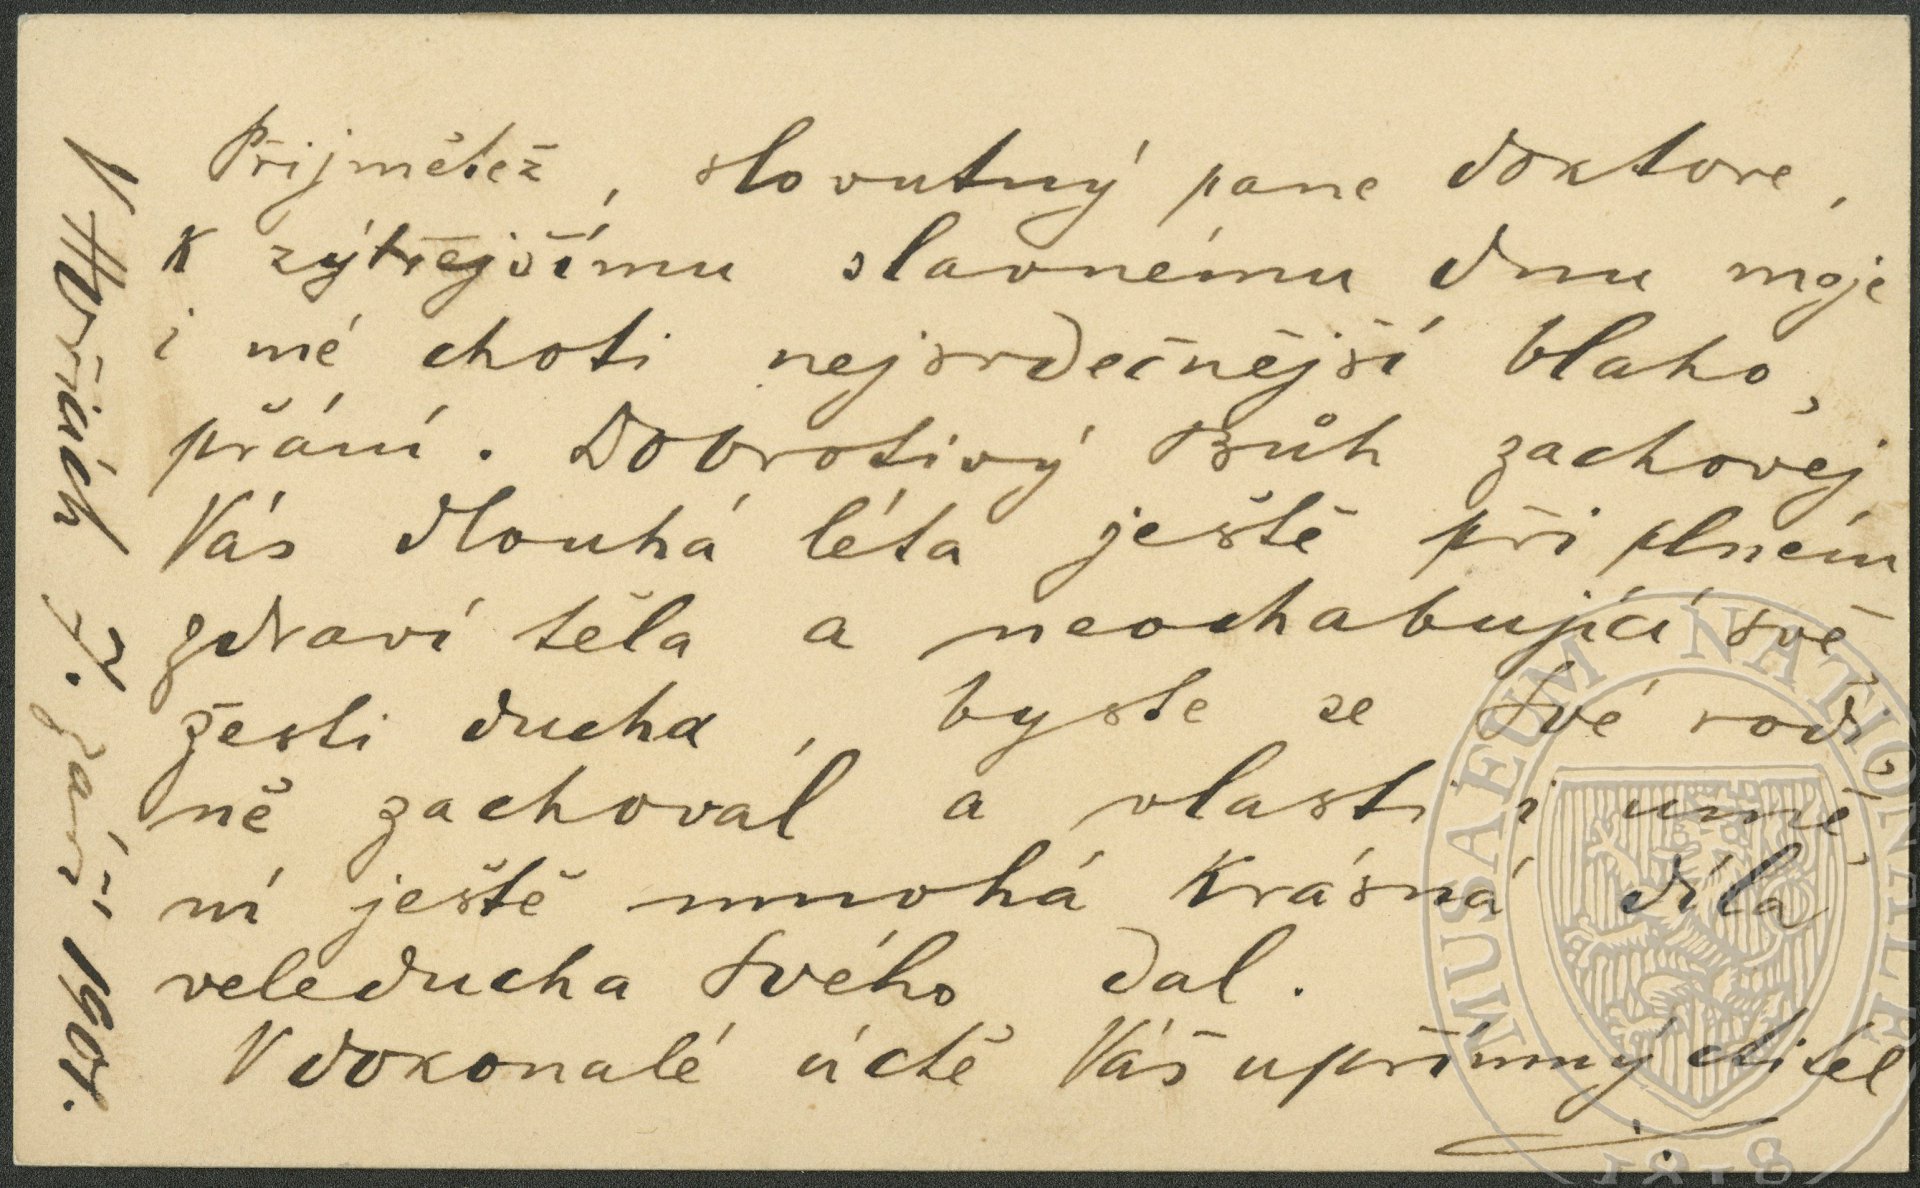 Přijmětež, slovutný pane doktore,
k zýtřejšímu slavnému dnu moje
i mé choti nejsrdečnější blaho,
přání. Dobrotivý Bůh zachovej
Vás dlouhá léta ještě při plném
zdraví těla a neochabující svě,
žesti ducha, byste se své rodi,
ně zachoval a vlasti i umě,
ní ještě mnohá krásná díla
veleducha svého dal.
V dokonalé úctě Váš upřímný ctitel
V Hořicích 7. září 1901.
MUSAEUM NATIONALE
1818